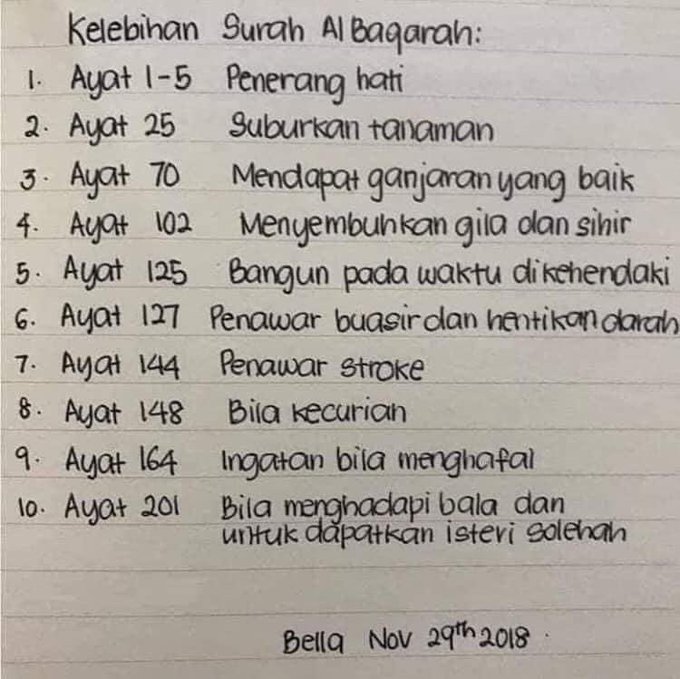 Kelebihan Surah Al Baqarah:
1. Ayat 1-5 Penerang hati
2. Ayat 25 Suburkan tanaman
3. Ayat 70 Mendapat ganjaran yang baik
4. Ayat 102 Menyembuhkan gila dan sihir
5. Ayat 125 Bangun pada waktu dikehendaki
6. Ayat 127 Penawar buasir dan hentikan darah
7. Ayat 144 Penawar stroke
8. Ayat 148 Bila kecurian
9. Ayat 164 Ingatan bila menghafal
10. Ayat 201 Bila menghadapi bala dan
untuk dapatkan isteri solehah
Bella Nov 29th 2018.